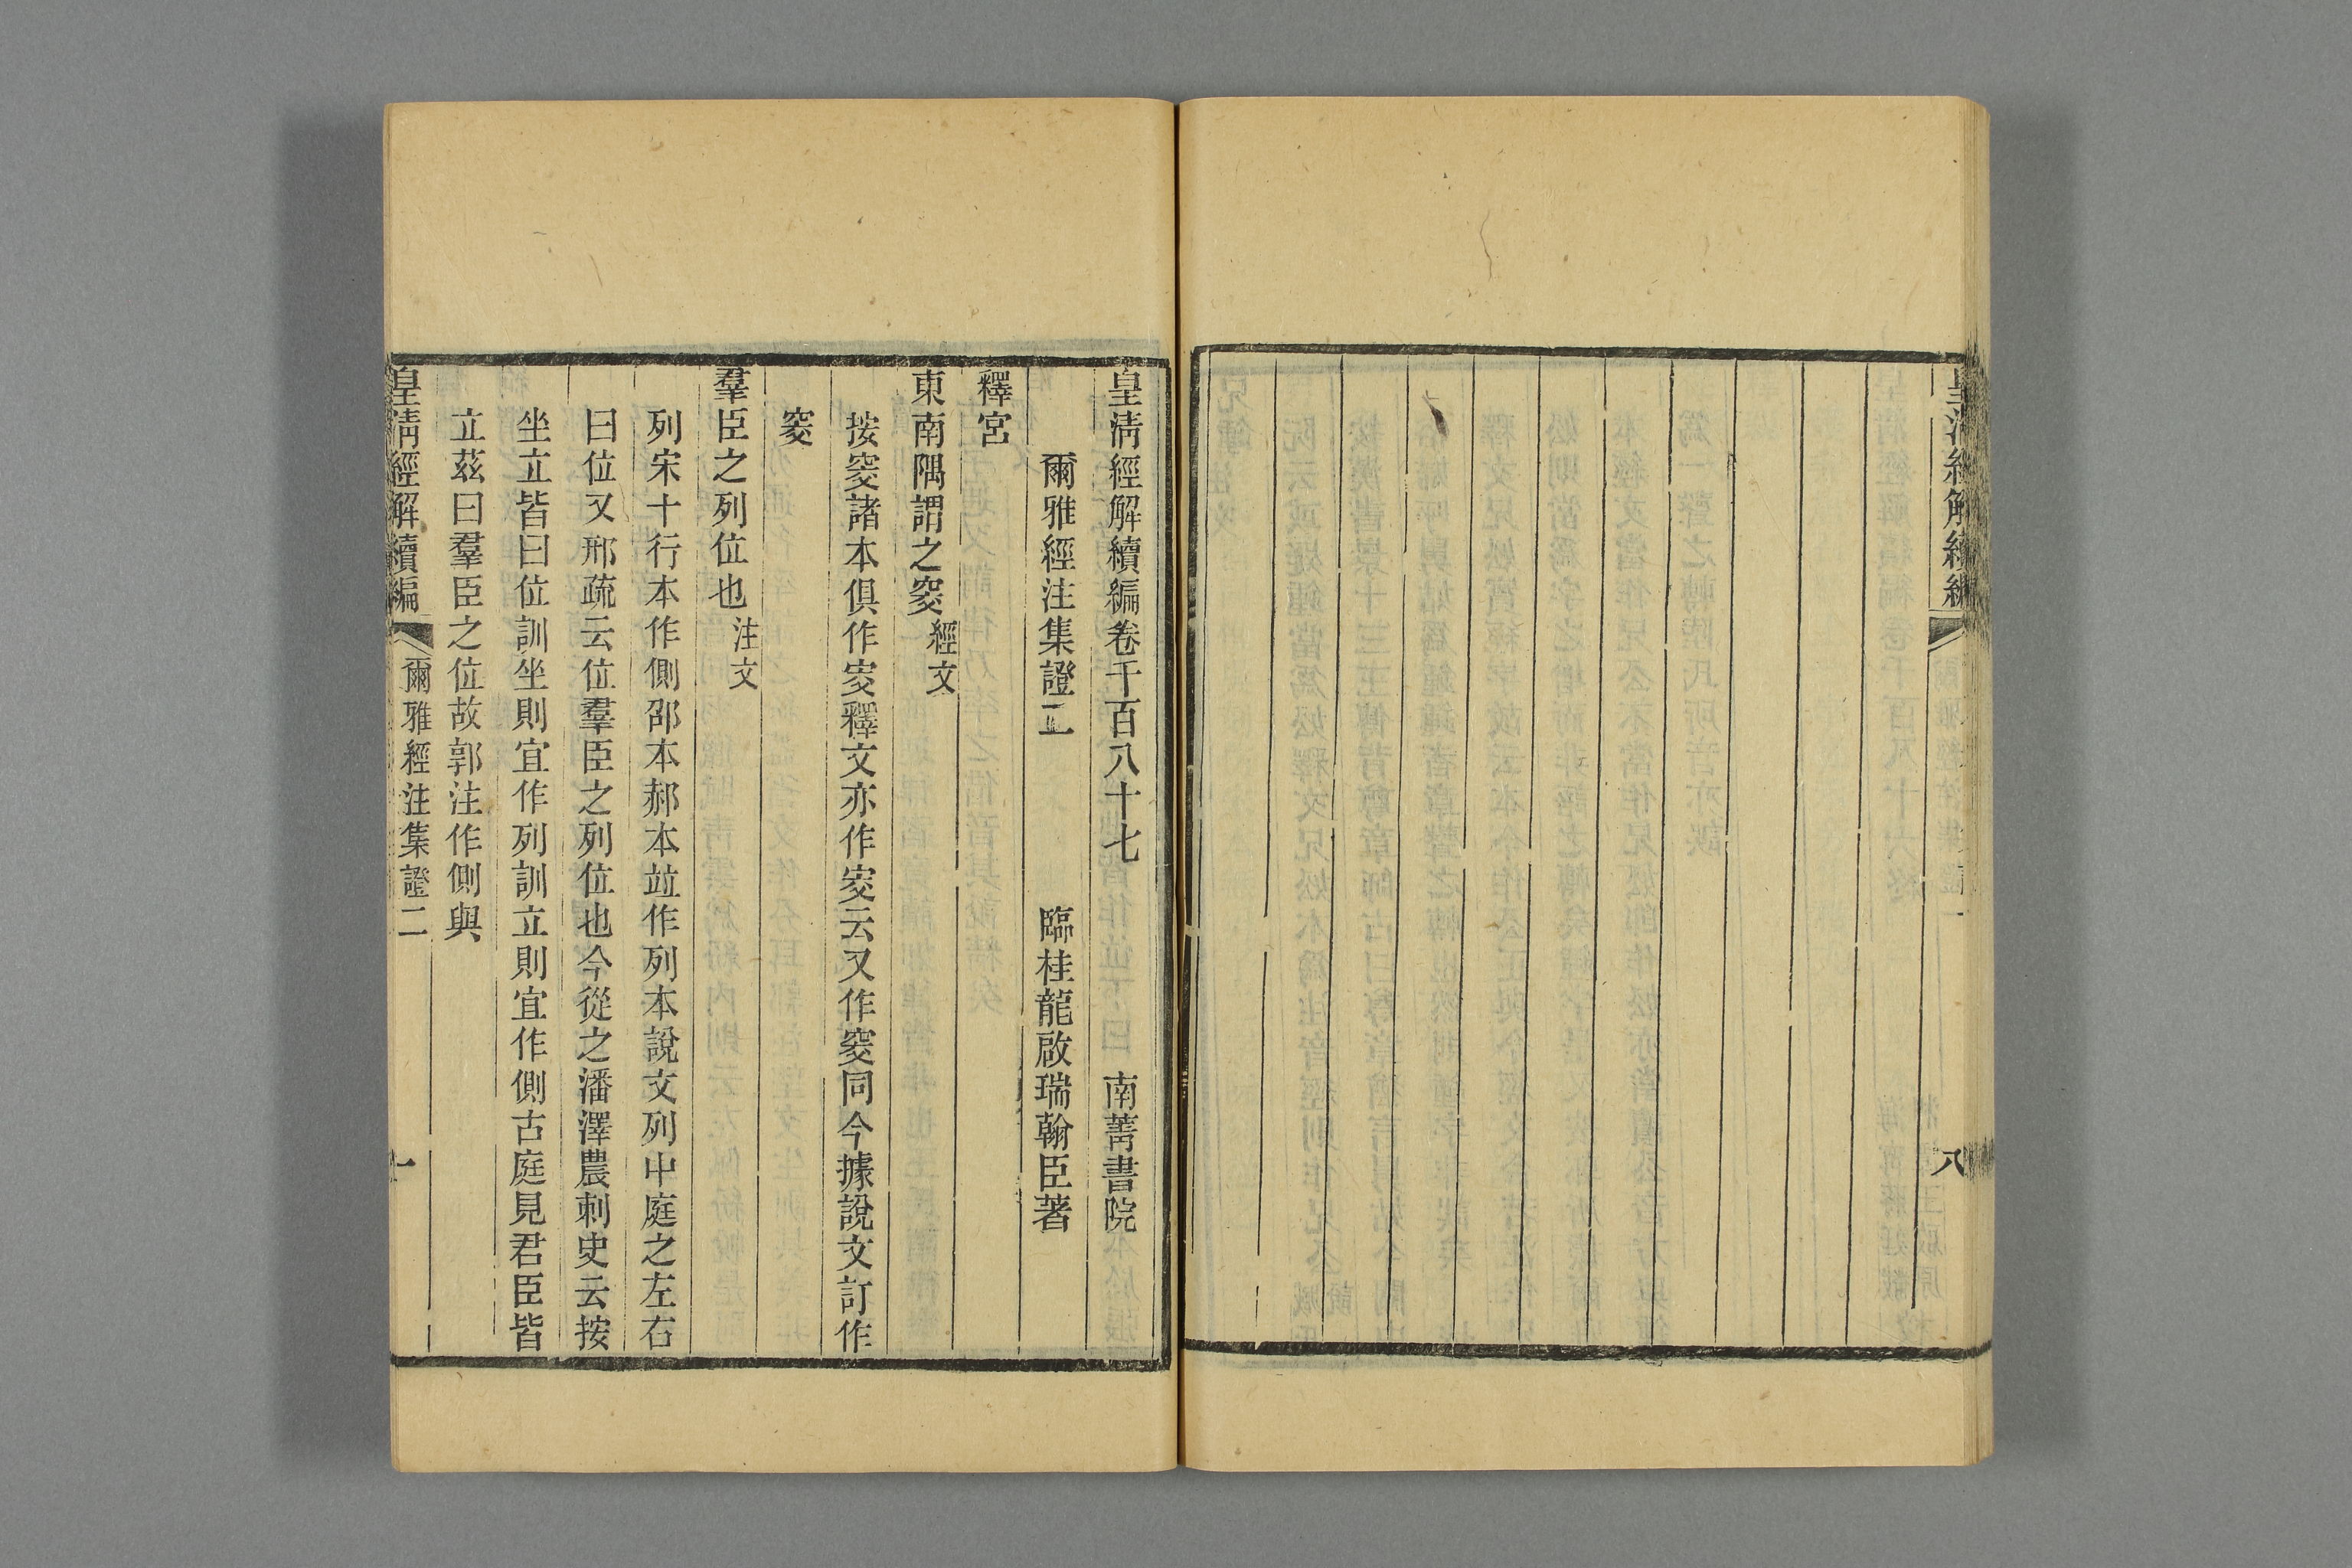 皇清經解續編
八
皇清經解續編卷千百八十七 南菁書院
爾雅經注集證二 臨桂龍啟瑞翰臣著
釋宮
東南隅謂之窔 經文
按窔諸本俱作㝔釋文亦作㝔云又作窔同今據說文訂作
窔
羣臣之列位也 注文
列宋十行本作側邵本郝本竝作列本說文列中庭之左右
曰位又邢疏云位羣臣之列位也今從之潘澤農刺史云按
坐立皆曰位訓坐則宜作列訓立則宜作側古庭見君臣皆
立茲曰羣臣之位故郭注作側與
皇清經解續編 爾雅經注集證二 一